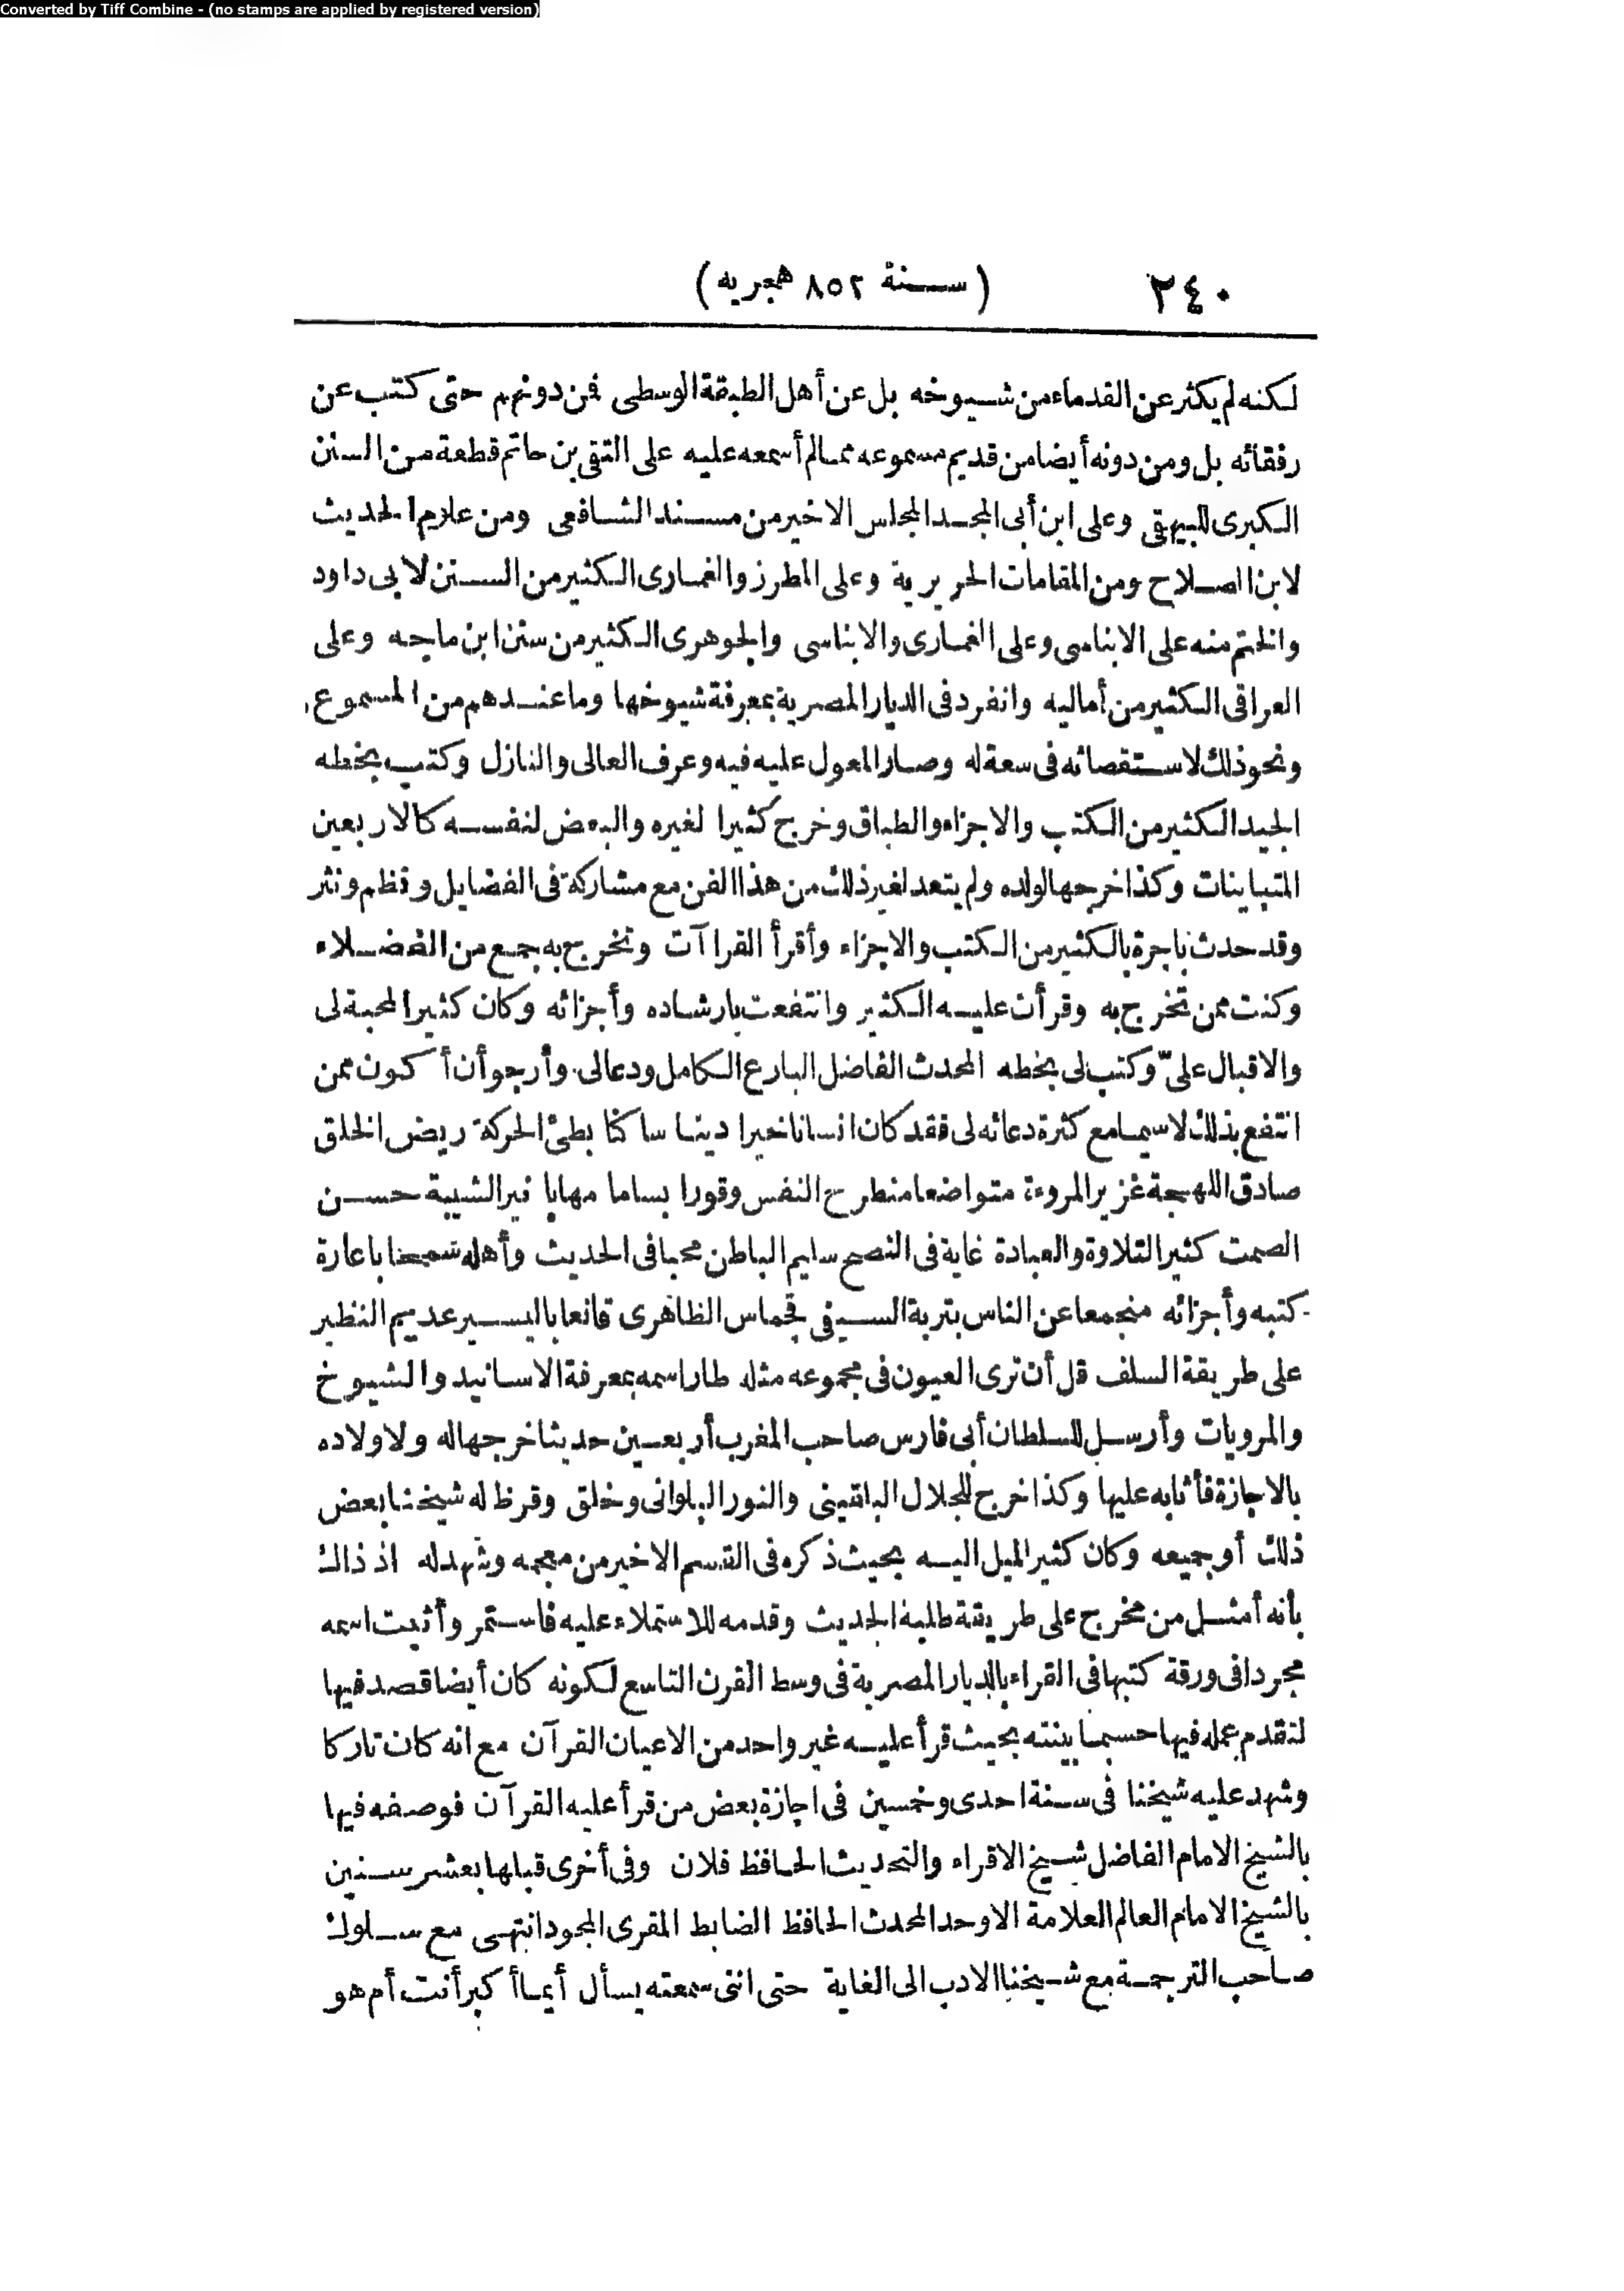 Converted by Tiff Combine - (no stamps are applied by registered version)
٢٤٠ (سنة ٨٥٢ هجريه)
لكنه لم يكثر عن القدماء من شيوخه بل عن أهل الطبقة الوسطى فمن دونهم حتى كتب عن
رفقائه بل ومن دونه أيضا من قديم مسموعه مما لم أسمعه عليه على التقى بن حاتم قطعة من السنن
الكبرى للبيهقى وعلى ابن أبى المجد المجلس الاخير من مسند الشافعى ومن علوم الحديث
لابن الصلاح ومن المقامات الحريرية وعلى المطرز والغمارى الكثير من السنن لابى داود
والختم منه على الابناسى وعلى الغمارى والابناسى والجوهرى الكثير من سنن ابن ماجه وعلى
العراقى الكثير من أماليه وانفرد فى الديار المصرية بمعرفة شيوخها وما عندهم من المسموع
ونحو ذلك لاستقصائه فى سعة له وصار المعول عليه فيه وعرف العالى والنازل وكتب بخطه
الجيد الكثير من الكتب والاجزاء والطباق وخرج كثيرا لغيره والبعض لنفسه كالاربعين
المتباينات وكذا خرجها لولده ولم يتعد لغير ذلك من هذا الفن مع مشاركة فى الفضايل ونظم ونثر
وقد حدث باجرة بالكثير من الكتب والاجزاء وأقرأ القراآت وتخرج به جمع من الفضلاء
وكنت ممن تخرج به وقرأت عليه الكثير وانتفعت بارشاده وأجزائه وكان كثير المحبة لى
والاقبال علىّ وكتب لى بخطه المحدث الفاضل البارع الكامل ودعا لى وأرجو أن أكون ممن
انتفع بذلك لاسيما مع كثرة دعائه لى فقد كان انسانا خيرا دينا ساكنا بطئ الحركة ريض الخلق
صادق اللهجة غزير المروءة متواضعا منطرح النفس وقورا بساما مهابا نير الشيبة حسن
الصمت كثير التلاوة والعبادة غاية فى النصح سليم الباطن محبا فى الحديث وأهله سمحا باعارة
كتبه وأجزائه منجمعا عن الناس بتربة السيفى قجماس الظاهرى قانعا باليسير عديم النظير
على طريقة السلف قل أن ترى العيون فى مجموعه مثله طار اسمه بمعرفة الاسانيد والشيوخ
والمرويات وأرسل للسلطان أبى فارس صاحب المغرب أربعين حديثا خرجها له ولاولاده
بالاجازة فأثابه عليها وكذا خرج للجلال البلقينى والنور البلوانى وخلق وقرظ له شيخنا بعض
ذلك أو جميعه وكان كثير الميل اليه بحيث ذكره فى القسم الاخير من معجمه وشهد له اذ ذاك
بأنه أمثل من مخرج على طريقة طلبة الحديث وقدمه للاستملاء عليه فاستمر وأثبت اسمه
مجردا فى ورقة كتبها فى القراء بالديار المصرية فى وسط القرن التاسع لكونه كان أيضا قصد فيها
لتقدم عمله فيها حسبما بينته بحيث قرأ عليه غير واحد من الاعيان القرآن مع انه كان تاركا
وشهد عليه شيخنا فى سنة احدى وخمسين فى اجازة بعض من قرأ عليه القرآن فوصفه فيها
بالشيخ الامام الفاضل شيخ الاقراء والتحديث الحافظ فلان وفى أخرى قبلها بعشر سنين
بالشيخ الامام العالم العلامة الاوحد المحدث الحافظ الضابط المقرى المجود انتهى مع سلوك
صاحب الترجمة مع شيخنا الادب الى الغاية حتى اننى سمعته يسأل أيما أكبر أنت أم هو